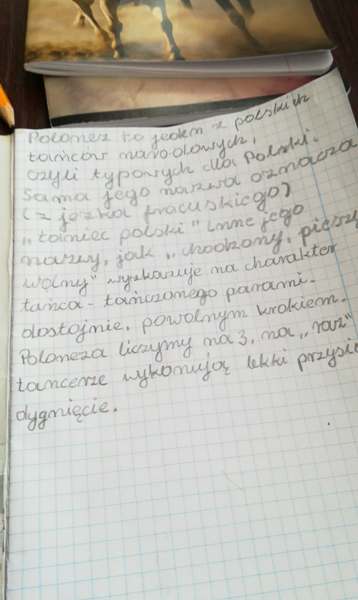 Polonez to jeden z polskich
tańców narodowych,
czyli typowych dla Polski.
Sama jego nazwa oznacza
(z języka fracuskiego)
„taniec polski" inne jego
nazwy, jak „chodzony, pieszy
wolny" wyskazuje na charakter
tańca - tańczonego parami.
dostojnie, powolnym krokiem.
Poloneza liczymy na 3, na „raz"
tancerze wykonują lekki przysia
dygnięcie.